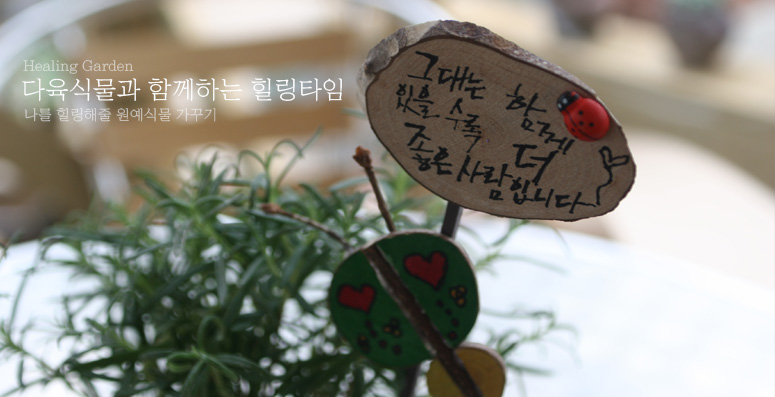 Healing Garden
다육식물과 함께하는 힐링타임
나를 힐링해줄 원예식물 가꾸기
그대는 함께
있을 수록 더
좋은 사람입니다